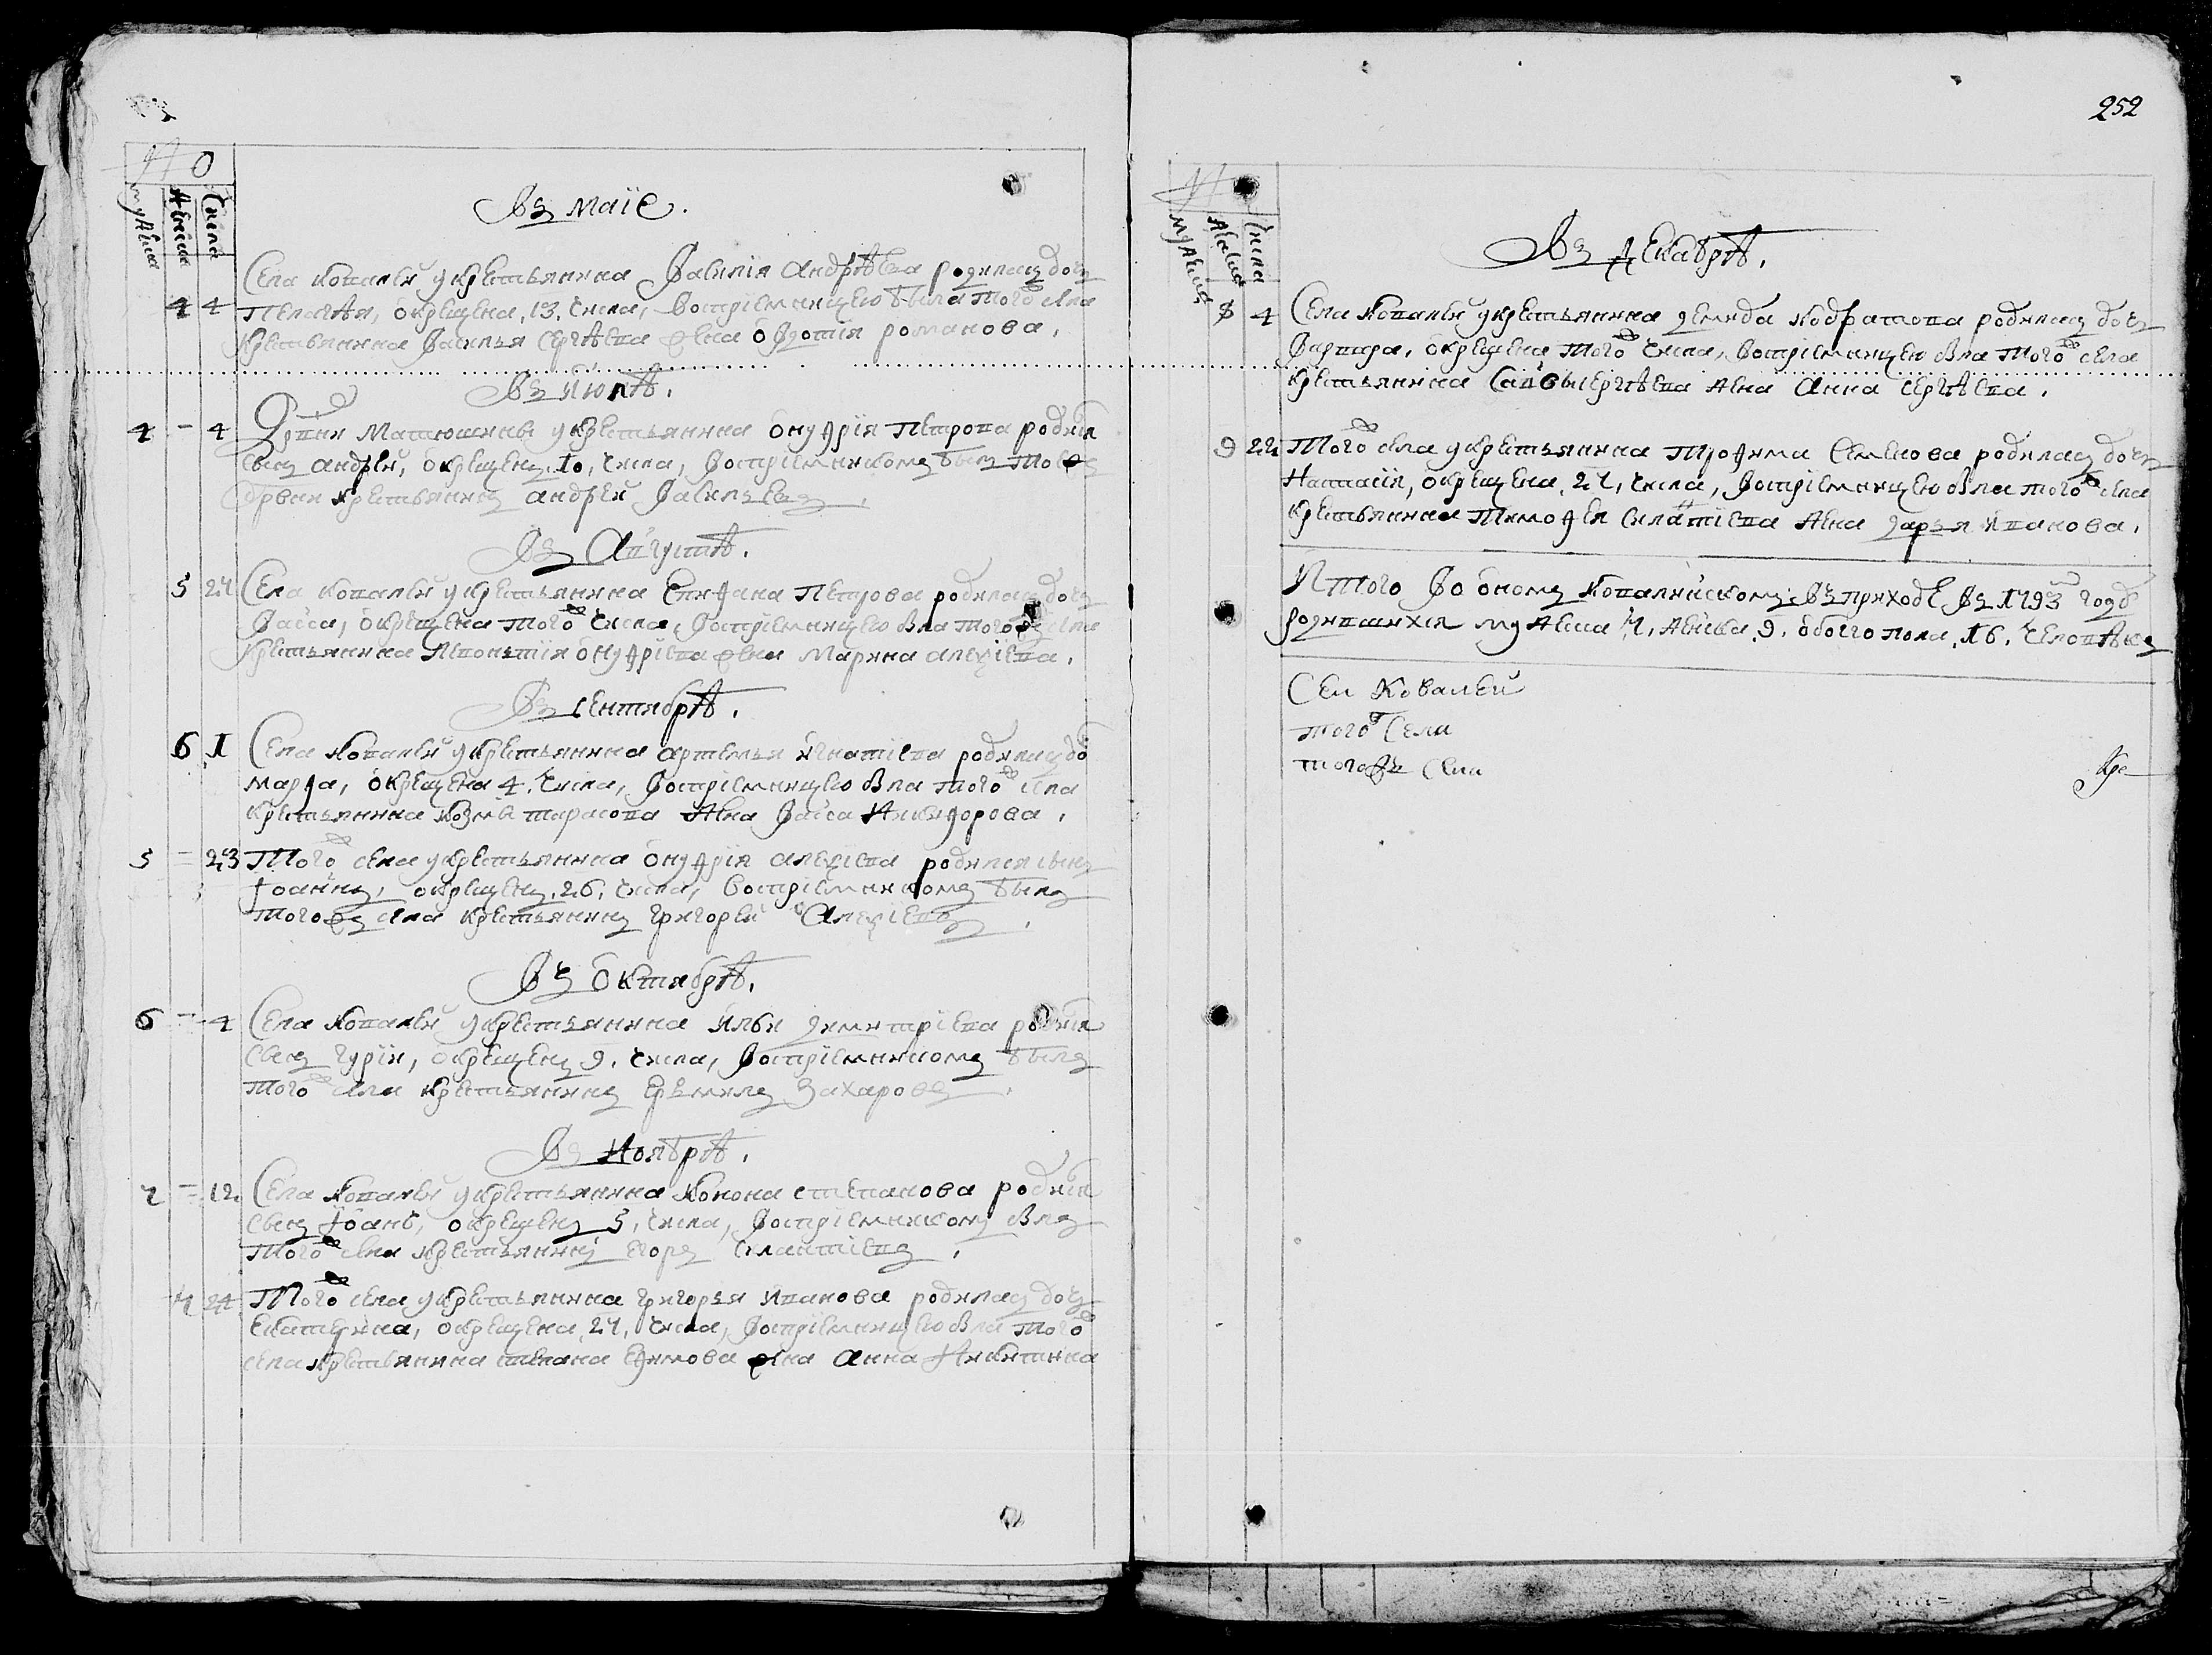 №
мужеска
женска
числа
Въ маие.
Села Ковалей у крестьянина Василия Андрѣева родилась дочь
4 4 Пелагѣя, окрещена, 13, числа, восприемницею была того ж села
крестьянина Василья Сергѣева жена Овдотия романова.
Въ июлѣ.
4 – 4 Матюшкиной у крестьянина Онуфрия Петрова родился
сынъ андрей, окрещенъ, 10, числа, восприемникомъ былъ тоежъ
крестьянинъ андрей Васильевъ.
Въ Августѣ.
5 24 Села Ковалей у крестьянина Епифана Петрова родилась дочь
Васса, окрещена того ж числа, восприемницею была того ж села
крестьянина онуфриева жена Марина алексиева.
Въ сентябрѣ.
6 1 Села Ковалей у крестьянина артемья игнатиева родилась до
марфа, окрещена 4, числа, восприемницею была того ж села
крестьянина козмы тарасова жена Васса Никифорова.
5 – 23 Того ж села у крестьянина онуфрия алексиева родился сынъ
Иоаннъ, окрещенъ, 26, числа, восприемникомъ былъ
тогожъ села крестьянинъ григорей Алексиевъ.
Въ Октябрѣ.
6 – 4 Села Ковалей у крестьянина ильи димитриева родился
сынъ гурий, окрещенъ 9, числа, восприемникомъ былъ
того ж села крестьянинъ Ермилъ Захаровъ.
Въ Ноябрѣ.
7 – 12 Села Ковалей у крестьянина Конона степанова родился
сынъ Иоанъ, окрещенъ 5, числа, восприемникомъ былъ
того ж села крестьянинъ егоръ
7 24 Того ж села у крестьянина григорья иванова родилась дочь
екатерина, окрещена, 27, числа, восприемницею была того ж
села крестьянина степана Ефимова жена анна Никитина
252
№
мужеска
женска
числа
Въ декабрѣ.
8 4 Села Ковалей у крестьянина демида кодратова родилась дочь
Варвара, окрещена того ж числа, восприемницею была того ж села
крестьянина Савы сергѣева жена анна сергѣева.
9 22 Того ж села у крестьянина Трофима Семенова родилась дочь
Настасия, окрещена, 27, числа, восприемницею была того ж села
крестьянина Тимофея жена дарья иванова.
Итого Во ономъ Ковалийскомъ въ приходе, Въ 1793 м годе
родившихся мужеска 7, женска, 9, обоего пола, 16, человѣкъ
Сел Ковалей
того ж Села
тогожъ Села
Кре